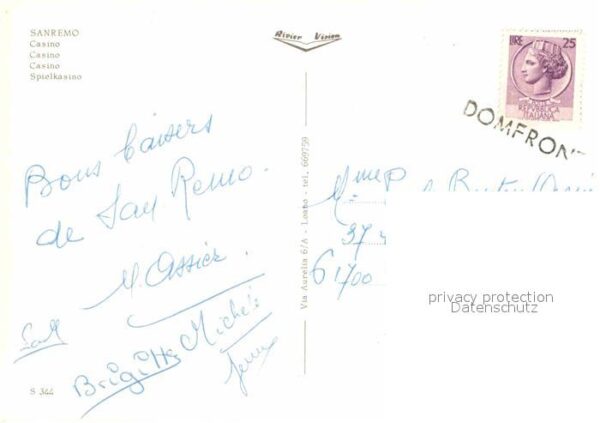 SANREMO
Casino
Casino
Casino
Spielkasino
Rivier Vision
LIRE 25
REPUBBLICA
ITALIANA
DOMFRON
Bons baisers
de San Remo.
M. Ossier.
Brigitte Michèle
S 344
Via Aurelia 6/A - Loano - tel. 669759
Mme P
37
61700
privacy protection
Datenschutz